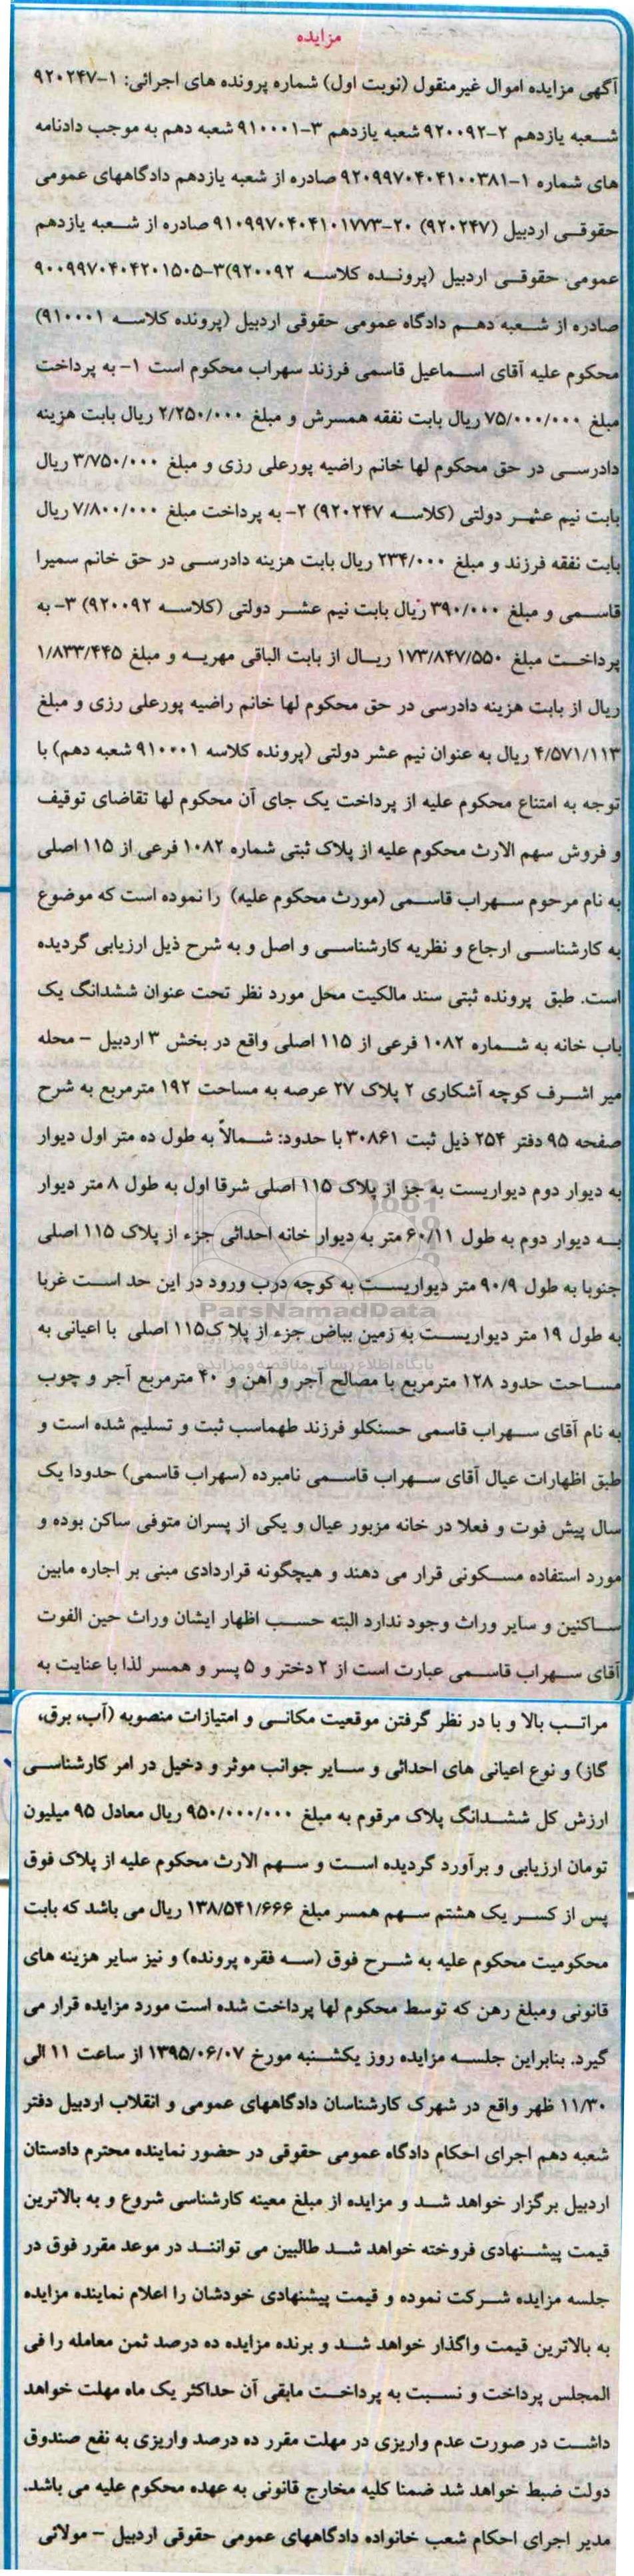 مزایده
آگهی مزایده اموال غیرمنقول (نوبت اول) شماره پرونده های اجرائی: ۱-۹۲۰۲۴۷
شعبه یازدهم ۲-۹۲۰۰۹۲ شعبه یازدهم ۳-۹۱۰۰۰۱ شعبه دهم به موجب دادنامه
های شماره ۱-۹۲۰۹۹۷۰۴۰۴۱۰۰۳۸۱ صادره از شعبه یازدهم دادگاههای عمومی
حقوقی اردبیل (۹۲۰۲۴۷) ۲-۹۱۰۹۹۷۰۴۰۴۱۰۱۷۷۳۰ صادره از شعبه یازدهم
عمومی حقوقی اردبیل (پرونده کلاسه ۹۲۰۰۹۲)۳-۹۰۰۹۹۷۰۴۰۴۲۰۱۵۰۵
صادره از شعبه دهم دادگاه عمومی حقوقی اردبیل (پرونده کلاسه ۹۱۰۰۰۱)
محکوم علیه آقای اسماعیل قاسمی فرزند سهراب محکوم است ۱- به پرداخت
مبلغ ۷۵/۰۰۰/۰۰۰ ریال بابت نفقه همسرش و مبلغ ۲/۲۵۰/۰۰۰ ریال بابت هزینه
دادرسی در حق محکوم لها خانم راضیه پورعلی رزی و مبلغ ۳/۷۵۰/۰۰۰ ریال
بابت نیم عشر دولتی (کلاسه ۹۲۰۲۴۷) ۲- به پرداخت مبلغ ۷/۸۰۰/۰۰۰ ریال
بابت نفقه فرزند و مبلغ ۲۳۴/۰۰۰ ریال بابت هزینه دادرسی در حق خانم سمیرا
قاسمی و مبلغ ۳۹۰/۰۰۰ ریال بابت نیم عشر دولتی (کلاسه ۹۲۰۰۹۲) ۳- به
پرداخت مبلغ ۱۷۳/۸۴۷/۵۵۰ ریال از بابت الباقی مهریه و مبلغ ۱/۸۳۳/۴۴۵
ریال از بابت هزینه دادرسی در حق محکوم لها خانم راضیه پورعلی رزی و مبلغ
۴/۵۷۱/۱۱۳ ریال به عنوان نیم عشر دولتی (پرونده کلاسه ۹۱۰۰۰۱ شعبه دهم) با
توجه به امتناع محکوم علیه از پرداخت یک جای آن محکوم لها تقاضای توقیف
و فروش سهم الارث محکوم علیه از پلاک ثبتی شماره ۱۰۸۲ فرعی از ۱۱۵ اصلی
به نام مرحوم سهراب قاسمی (مورث محکوم علیه) را نموده است که موضوع
به کارشناسی ارجاع و نظریه کارشناسی و اصل و به شرح ذیل ارزیابی گردیده
است. طبق پرونده ثبتی سند مالکیت محل مورد نظر تحت عنوان ششدانگ یک
باب خانه به شماره ۱۰۸۲ فرعی از ۱۱۵ اصلی واقع در بخش ۳ اردبیل - محله
میر اشرف کوچه آشکاری ۲ پلاک ۲۷ عرصه به مساحت ۱۹۲ مترمربع به شرح
صفحه ۹۵ دفتر ۲۵۴ ذیل ثبت ۳۰۸۶۱ با حدود: شمالاً به طول ده متر اول دیوار
به دیوار دوم دیواریست به جز از پلاک ۱۱۵ اصلی شرقا اول به طول ۸ متر دیوار
به دیوار دوم به طول ۶۰/۱۱ متر به دیوار خانه احداثی جزء از پلاک ۱۱۵ اصلی
جنوبا به طول ۹۰/۹ متر دیواریست به کوچه درب ورود در این حد است غربا
ParsNamadData
به طول ۱۹ متر دیواریست به زمین بیاض جزء از پلاک۱۱۵ اصلی با اعیانی به
پایگاه اطلاع رسانی مناقصه و مزایده
مساحت حدود ۱۲۸ مترمربع با مصالح آجر و آهن و ۴۰ مترمربع آجر و چوب
به نام آقای سهراب قاسمی حسنکلو فرزند طهماسب ثبت و تسلیم شده است و
طبق اظهارات عیال آقای سهراب قاسمی نامبرده (سهراب قاسمی) حدودا یک
سال پیش فوت و فعلا در خانه مزبور عیال و یکی از پسران متوفی ساکن بوده و
مورد استفاده مسکونی قرار می دهند و هیچگونه قراردادی مبنی بر اجاره مابین
ساکنین و سایر وراث وجود ندارد البته حسب اظهار ایشان وراث حین الفوت
آقای سهراب قاسمی عبارت است از ۲ دختر و ۵ پسر و همسر لذا با عنایت به
مراتب بالا و با در نظر گرفتن موقعیت مکانی و امتیازات منصوبه (آب، برق،
گاز) و نوع اعیانی های احداثی و سایر جوانب موثر و دخیل در امر کارشناسی
ارزش کل ششدانگ پلاک مرقوم به مبلغ ۹۵۰/۰۰۰/۰۰۰ ریال معادل ۹۵ میلیون
تومان ارزیابی و برآورد گردیده است و سهم الارث محکوم علیه از پلاک فوق
پس از کسر یک هشتم سهم همسر مبلغ ۱۳۸/۵۴۱/۶۶۶ ریال می باشد که بابت
محکومیت محکوم علیه به شرح فوق (سه فقره پرونده) و نیز سایر هزینه های
قانونی ومبلغ رهن که توسط محکوم لها پرداخت شده است مورد مزایده قرار می
گیرد. بنابراین جلسه مزایده روز یکشنبه مورخ ۱۳۹۵/۰۶/۰۷ از ساعت ۱۱ الی
۱۱/۳۰ ظهر واقع در شهرک کارشناسان دادگاههای عمومی و انقلاب اردبیل دفتر
شعبه دهم اجرای احکام دادگاه عمومی حقوقی در حضور نماینده محترم دادستان
اردبیل برگزار خواهد شد و مزایده از مبلغ معینه کارشناسی شروع و به بالاترین
قیمت پیشنهادی فروخته خواهد شد طالبین می توانند در موعد مقرر فوق در
جلسه مزایده شرکت نموده و قیمت پیشنهادی خودشان را اعلام نماینده مزایده
به بالاترین قیمت واگذار خواهد شد و برنده مزایده ده درصد ثمن معامله را فی
المجلس پرداخت و نسبت به پرداخت مابقی آن حداکثر یک ماه مهلت خواهد
داشت در صورت عدم واریزی در مهلت مقرر ده درصد واریزی به نفع صندوق
دولت ضبط خواهد شد ضمنا کلیه مخارج قانونی به عهده محکوم علیه می باشد.
مدیر اجرای احکام شعب خانواده دادگاههای عمومی حقوقی اردبیل - مولائی